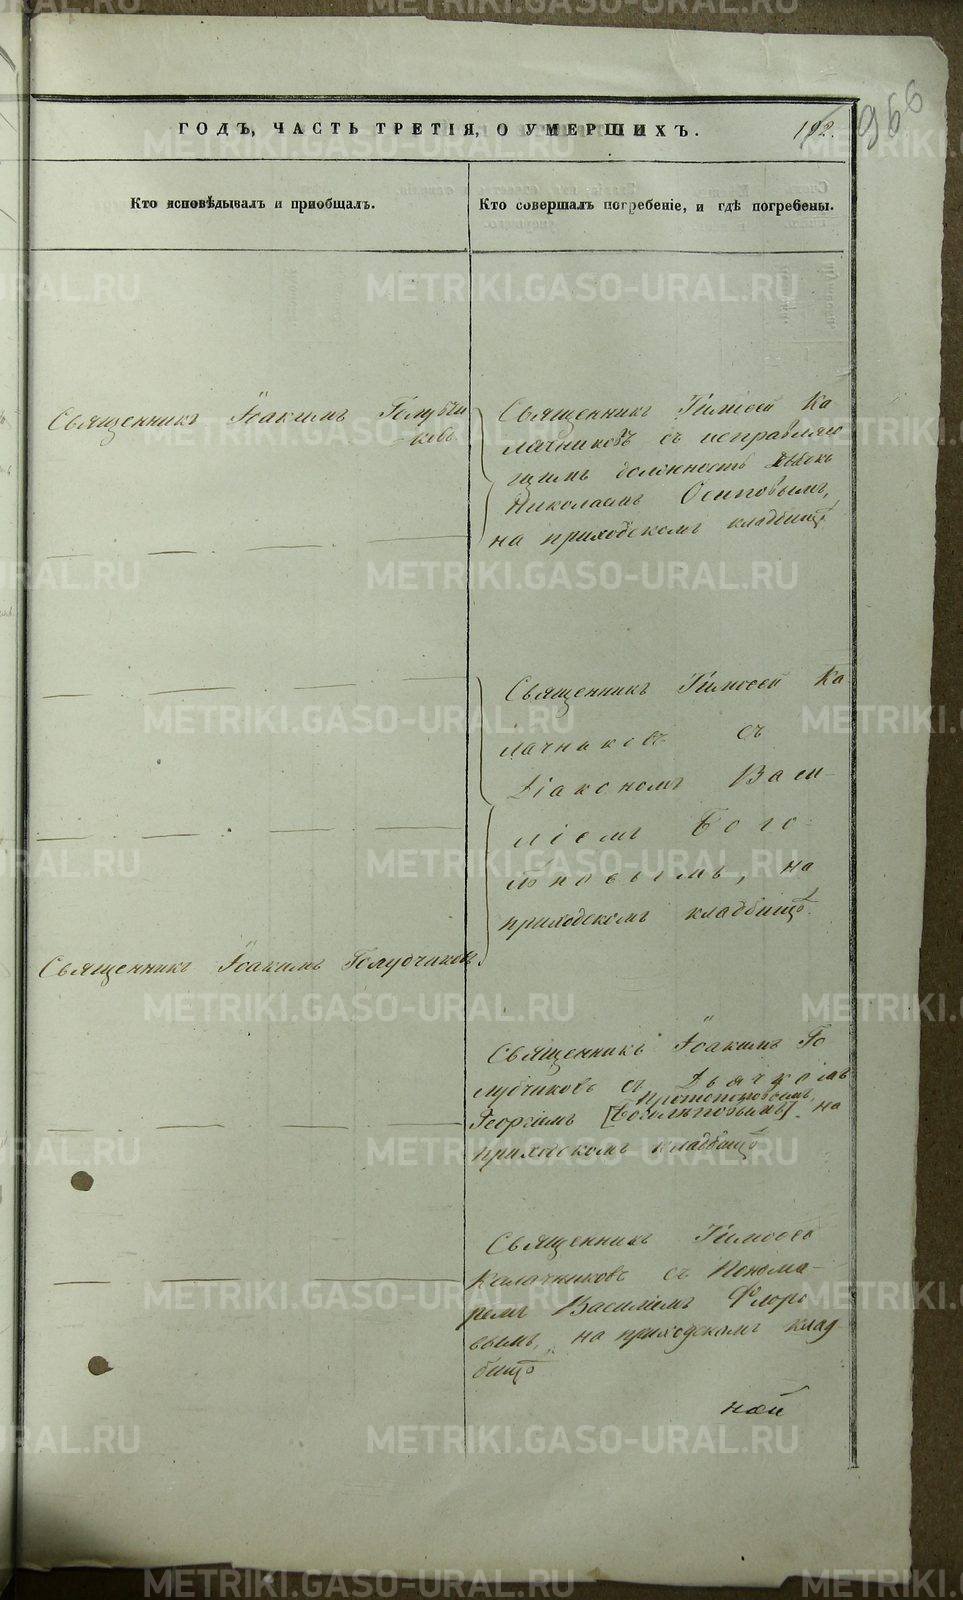 ГОДЪ, ЧАСТЬ ТРЕТІЯ, О УМЕРШИХЪ.
192.
966
Кто исповѣдывалъ и пріобщалъ.
Кто совершалъ погребеніе, и гдѣ погребены.
Священникъ Іоакимъ Голубчи
ковъ
Священникъ Тимоѳей Ка
лачниковъ съ исправляю
щимъ должность
Николаемъ Осиповымъ,
на приходскомъ кладбищѣ
Священникъ Тимоѳей Ка
лачниковъ съ
Діакономъ Васи-
ліемъ Бого-
, на
приходскомъ кладбищѣ.
Священникъ Іоакимъ Голубчиковъ
Священникъ Іоакимъ Го
лубчиковъ съ Дьячкомъ
Протопоповымъ,
Георгіемъ [] на
приходскомъ кладбищѣ
Священникъ Тимоѳей
Калачниковъ съ Понома-
ремъ Василіемъ Флоро
вымъ, на приходскомъ клад-
бищѣ
ной
METRIKI.GASO-URAL.RU